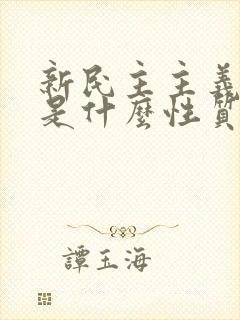 新民主主義
是什麼性質
譚玉海